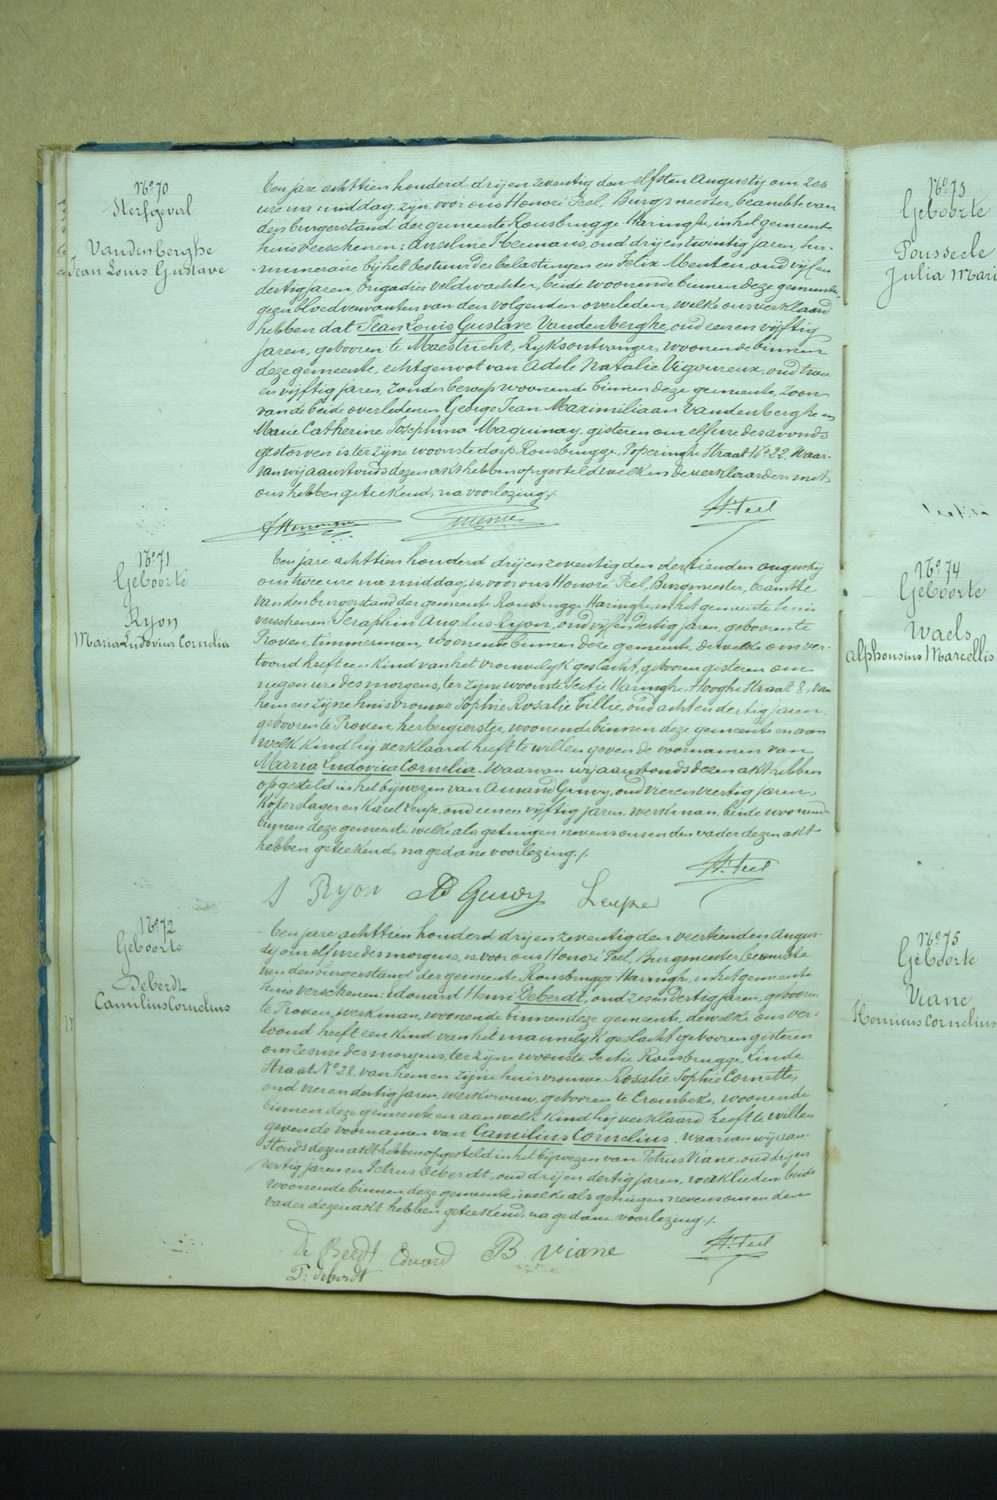 No 70
Sterfgeval
Vandenberghe
Jean Louis Gustave
Ten jare achttien honderd drijenzeventig den elfsten Augusty om zes
ure na middag, zyn voor ons Honoré Feel, Burgmeester, beambte van
den burgerstand der gemeente Rousbrugge Haringhe, in het gemeente
huis verschenen: Anselme Hermans, oud drijentwintig jaren, sur-
numeraire bij het bestuur der belastingen en Felix Menten, oud vijfen
dertig jaren, brigadier veldwachter, beide woonende binnen deze gemeente
geen bloedverwanten van den volgenden overleden, welke ons verklaard
hebben dat Jean Louis Gustave Vandenberghe, oud eenen vijftig
jaren, gebooren te Maestricht, Ryksontvanger, woonende binnen
deze gemeente, echtgenoot van Adele Natalie Vigoureux, oud twee
en vijftig jaren, zonder beroep woonende binnen deze gemeente, zoon
van de beide overledenen George Jean Maximiliaan Vandenberghe en
Marie Catherine Josephina Maquinay, gisteren om elf ure des avonds
gestorven is ter zijne woonste dorp Rousbrugge, Poperinghe Straat No 22. Waar-
van wij aanstonds dezen akt hebben opgesteld welken de verklaarders met
ons hebben geteekend, na voorlezing./.
H. Feel
No 71
Geboorte
Ryon
Maria Ludovica Cornelia
Ten jare achttien honderd drijenzeventig den dertienden augusty
om twee ure na middag, is voor ons Honoré Feel, Burgmeester, beambte
van den burgerstand der gemeente Rousbrugge Haringhe, in het gemeente huis
verschenen: Seraphin Angelus Ryon, oud vijfendertig jaren, gebooren te
Proven, timmerman, woonende binnen deze gemeente, dewelke ons ver-
toond heeft een kind van het vrouwelyk geslacht, gebooren gisteren om
negen ure des morgens, ter zijne woonste Sectie Haringhe, Hooghe Straat 8, van
hem en zijne huisvrouwe Sophie Rosalie Tillie, oud achtendertig jaren,
gebooren te Proven, herbergierster, woonende binnen deze gemeente en aan
welk kind hij verklaard heeft te willen geven de voornamen van
Maria Ludovica Cornelia. Waarvan wij aanstonds dezen akt hebben
opgesteld in het bijwezen van Amand Gruwy, oud vierenveertig jaren,
koperslager en Karel Leupe, oud eenen vijftig jaren, werkman, beide woonende
binnen deze gemeente welke als getuigen nevens ons en den vader dezen akt
hebben geteekend, na gedane voorlezing./.
H. Feel
S Ryon Gruwy Leupe
No 72
Geboorte
Deberdt
Camilius Cornelius
Ten jare achttien honderd drijenzeventig den veertienden Augus-
ty om elf ure des morgens, is voor ons Honoré Feel, Burgmeester beambte
van den burgerstand der gemeente Rousbrugge Haringhe, in het gemeente
huis verschenen: Edouard Henri Deberdt, oud zevendertig jaren, gebooren
te Proven, werkman, woonende binnen deze gemeente, dewelke ons ver-
toond heeft een kind van het mannelyk geslacht gebooren gisteren
om zes ure des morgens, ter zijne woonste Sectie Rousbrugge, Linde
Straat No 32 van hem en zijne huisvrouwe Rosalie Sophie Cornette,
oud vierendertig jaren, werkvrouw, gebooren te Crombeke, woonende
binnen deze gemeente en aan welk kind hij verklaard heeft te willen
geven de voornamen van Camilius Cornelius. Waarvan wij aan-
stonds dezen akt hebben opgesteld in het bijwezen van Petrus Viane, oud drijen
vertig jaren en Petrus Deberdt, oud drijendertig jaren, werklieden, beide
woonende binnen deze gemeente, welke als getuigen nevens ons en den
vader dezen akt hebben geteekend, na gedane voorlezing./.
De Berdt Edward P. Viane H. Feel
P: deberdt
No 73
Geboorte
Pousseele
Julia Mari
No 74
Geboorte
Waels
Alphonsius Marcellis
No 75
Geboorte
Viane
Henricus Cornelius